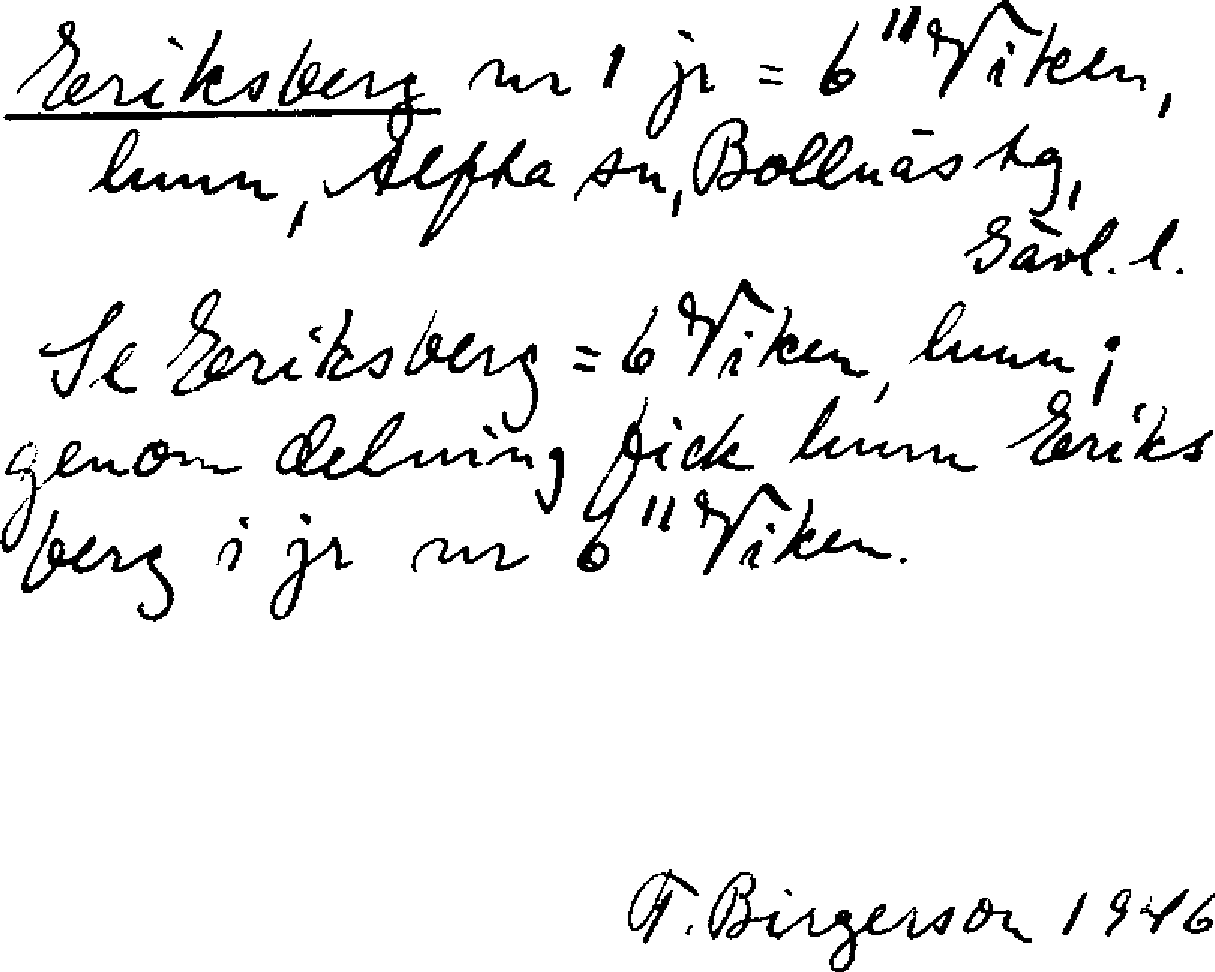 Eriksberg nr 1 jr = 6¹¹ Viken,
hmn, Alfta sn, Bollnäs tg,
Gävl. l.
Se Eriksberg = 6 Viken, hmn;
genom delning fick hmn Eriks
berg i jr nr 6¹¹ Viken.
F. Birgerson 1946